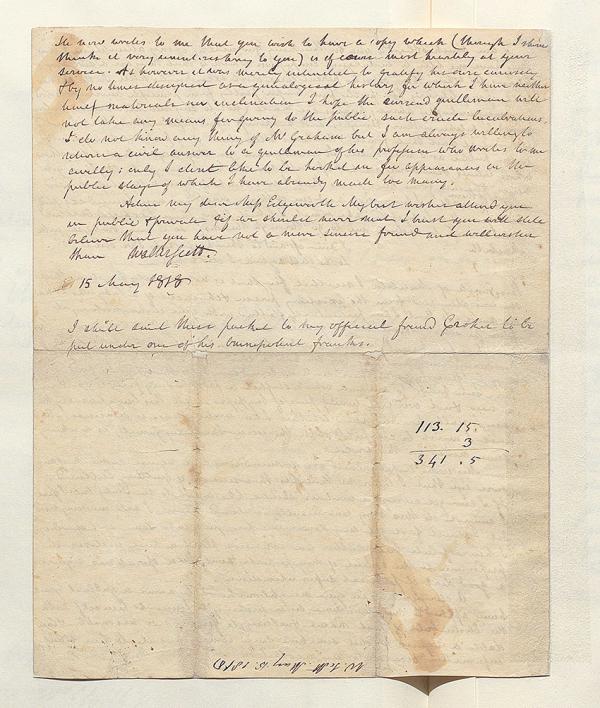 He now writes to me that you wish to have a copy which (though I shoud
think it very uninteresting to you) is of course most heartily at your
service. As however it was merely intended to gratify his own curiosity
& by no means designed as a genealogical history for which I have neither
time materials nor inclination I hope the gentleman will
not take any means for giving to the public such crude lucubrations.
I do not know any thing of Mr Graham but I am always willing to
return a civil answer to a gentleman of his profession who writes to me
civilly: only I dont like to be hooked in for appearances on the
public stage of which I have already made too many.
Adieu my dear Miss Edgeworth My best wishes attend you
in public & private & if we should never meet I trust you will still
believe that you have not a more sincere friend and wellwisher
than Walter Scott.
15 May 1818
I shall send this packet to my official friend Croker to be
put under one of his omnipotent franks.
113. 15.
3
341 . 5
W. Scott May 15 1818